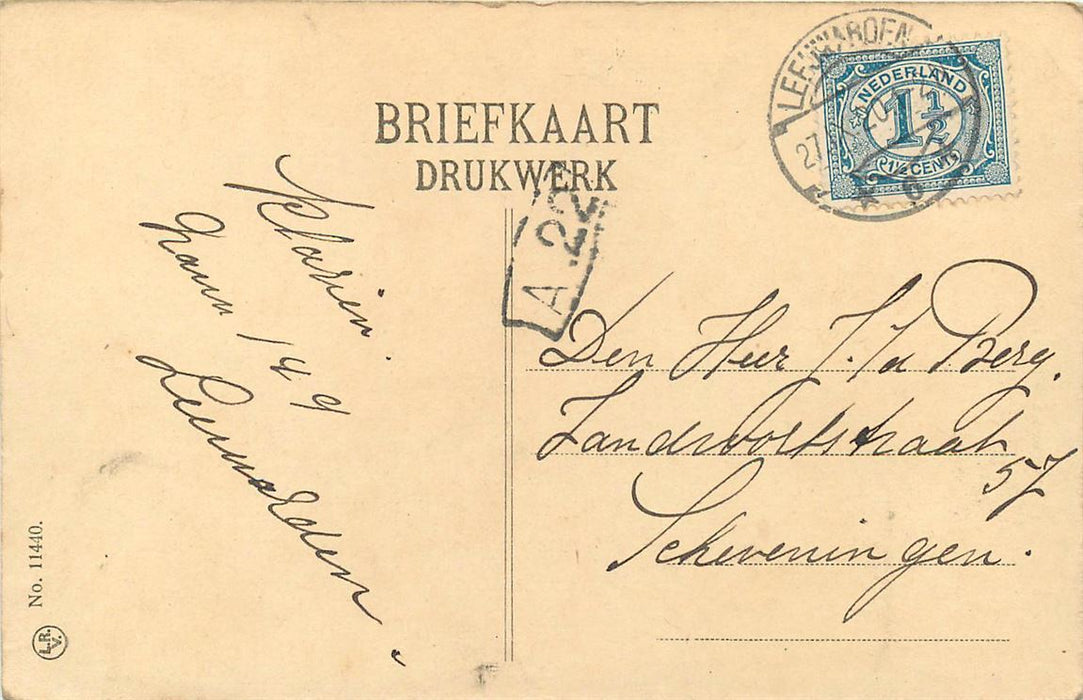 BRIEFKAART
DRUKWERK
LEEUWARDEN
NEDERLAND
1 1/2
1/2 CENT
A 22
149
Leeuwarden
Den Heer J. Berg.
Zandvoortstraat
57
Scheveningen.
No. 11440.
L.R.
V.